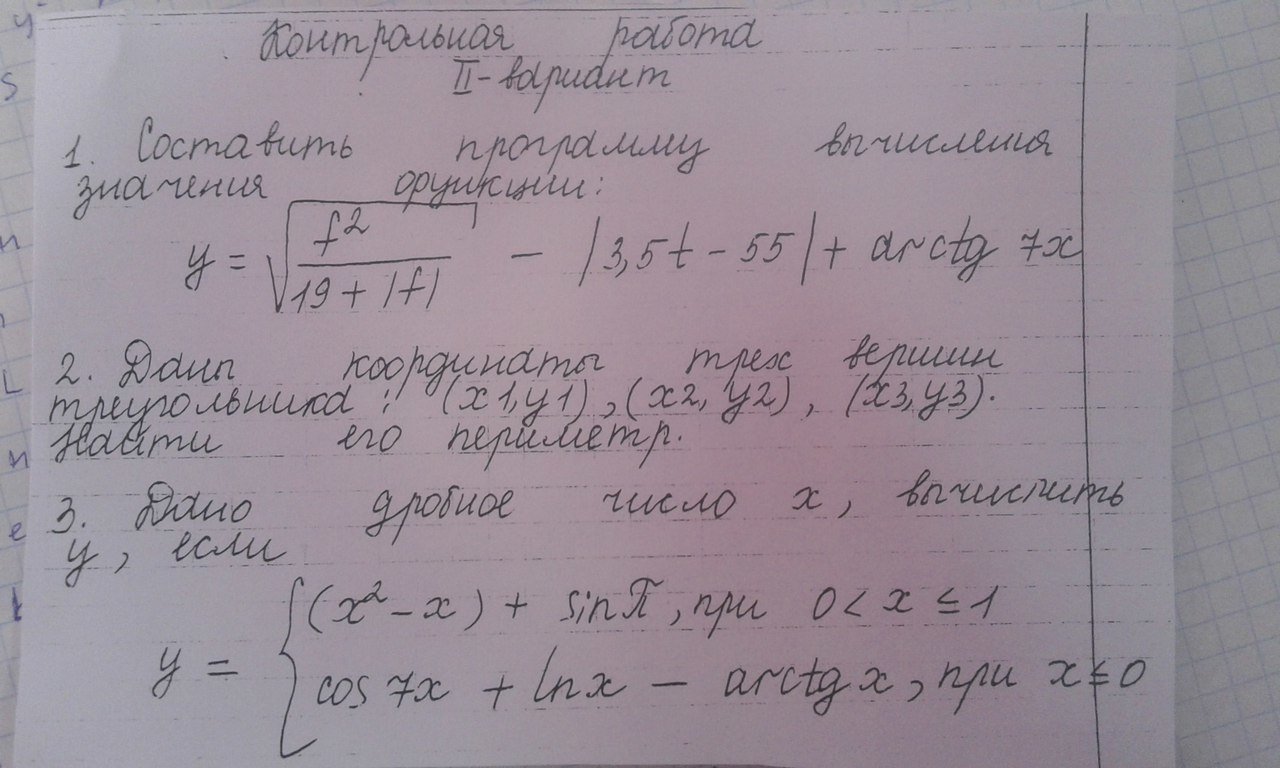 Контрольная работа
II-вариант
1. Составить программу вычисления
значения функции:
y = √(f²/(19 + |f|)) - |3,5t - 55| + arctg 7x
2. Даны координаты трех вершин
треугольника: (x1,y1), (x2, y2), (x3,y3).
Найти его периметр.
3. Дано дробное число x, вычислить
y, если
y = { (x² - x) + sin π, при 0 < x ≤ 1
cos 7x + ln x - arctg x, при x ≤ 0